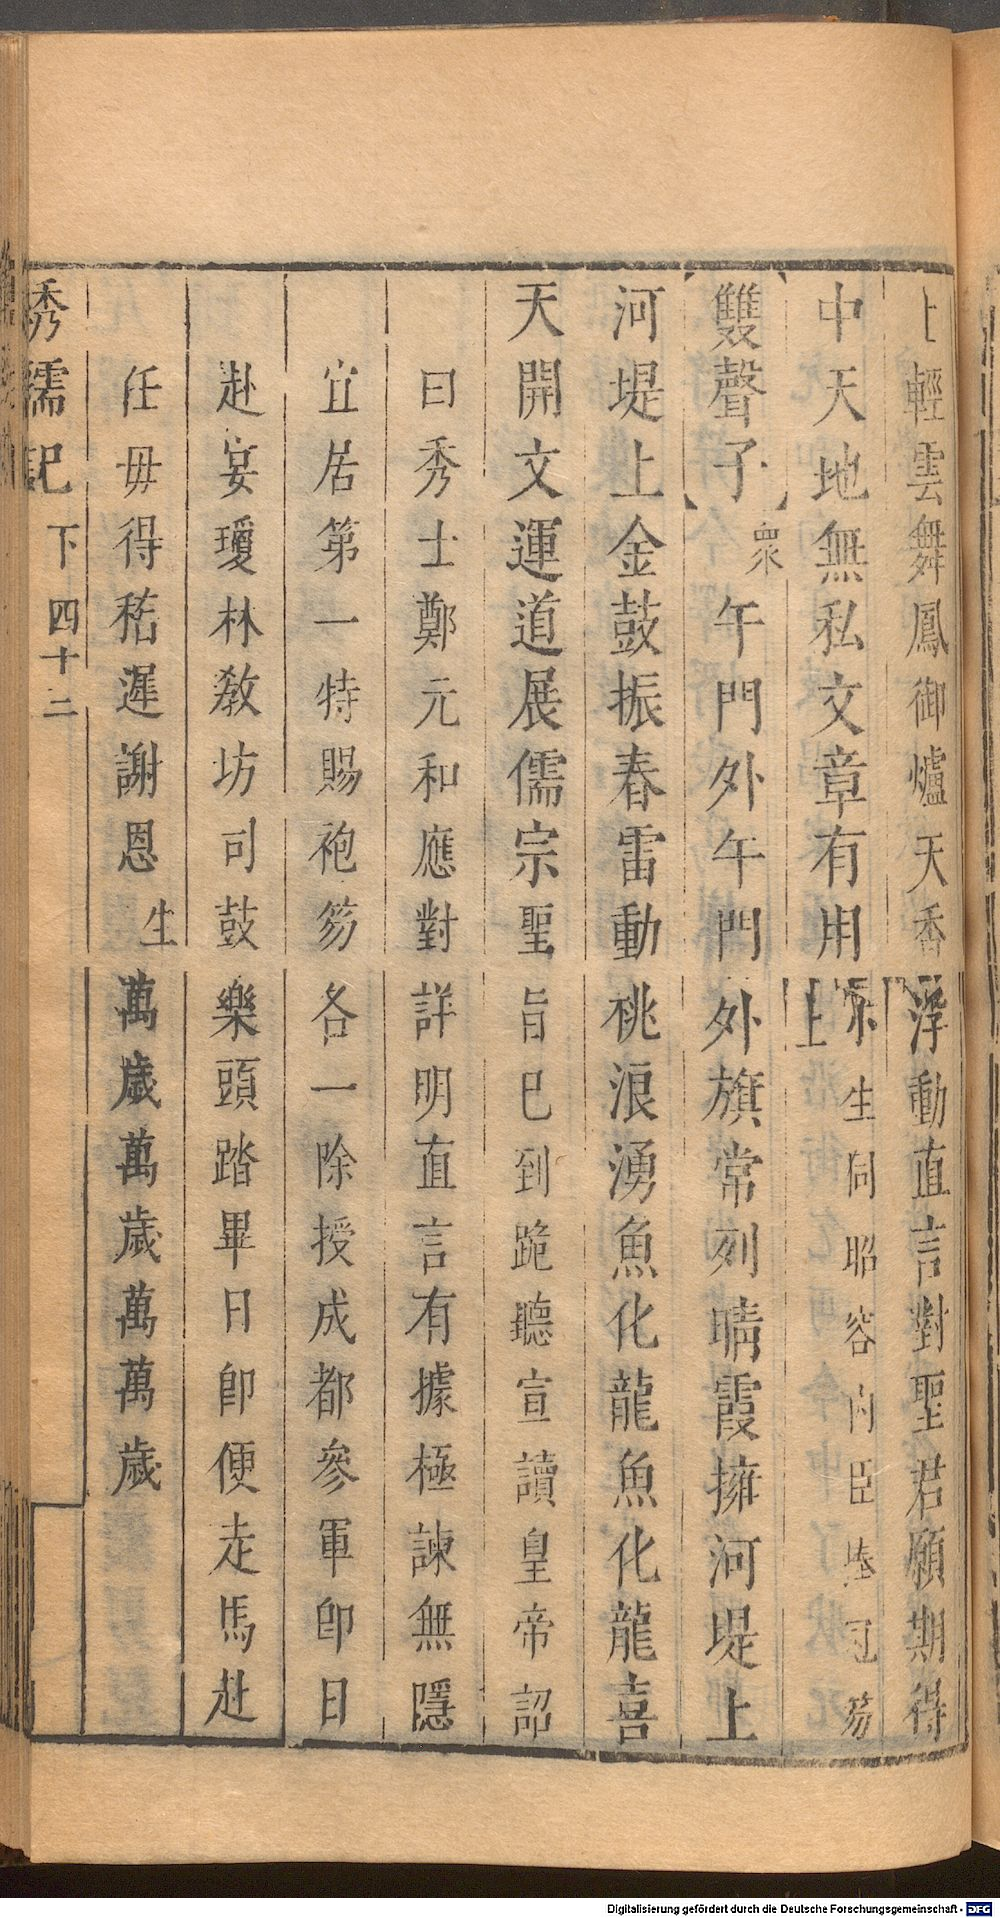 上輕雲舞鳳御爐天香浮動直言對聖君願期得
中天地無私文章有用 下 生同昭容內臣捧冠笏上
雙聲子 衆 午門外午門外旗常列晴霞擁河堤上
河堤上金鼓振春雷動桃浪湧魚化龍魚化龍喜
天開文運道展儒宗聖旨已到跪聽宣讀皇帝詔
曰秀士鄭元和應對詳明直言有據極諫無隱
宜居第一特賜袍笏各一除授成都參軍即日
赴宴瓊林教坊司鼓樂頭踏畢日即便走馬赴
任毋得嵇遲謝恩 生 萬歲萬歲萬萬歲
秀襦記 下 四十二
Digitalisierung gefördert durch die Deutsche Forschungsgemeinschaft - DFG